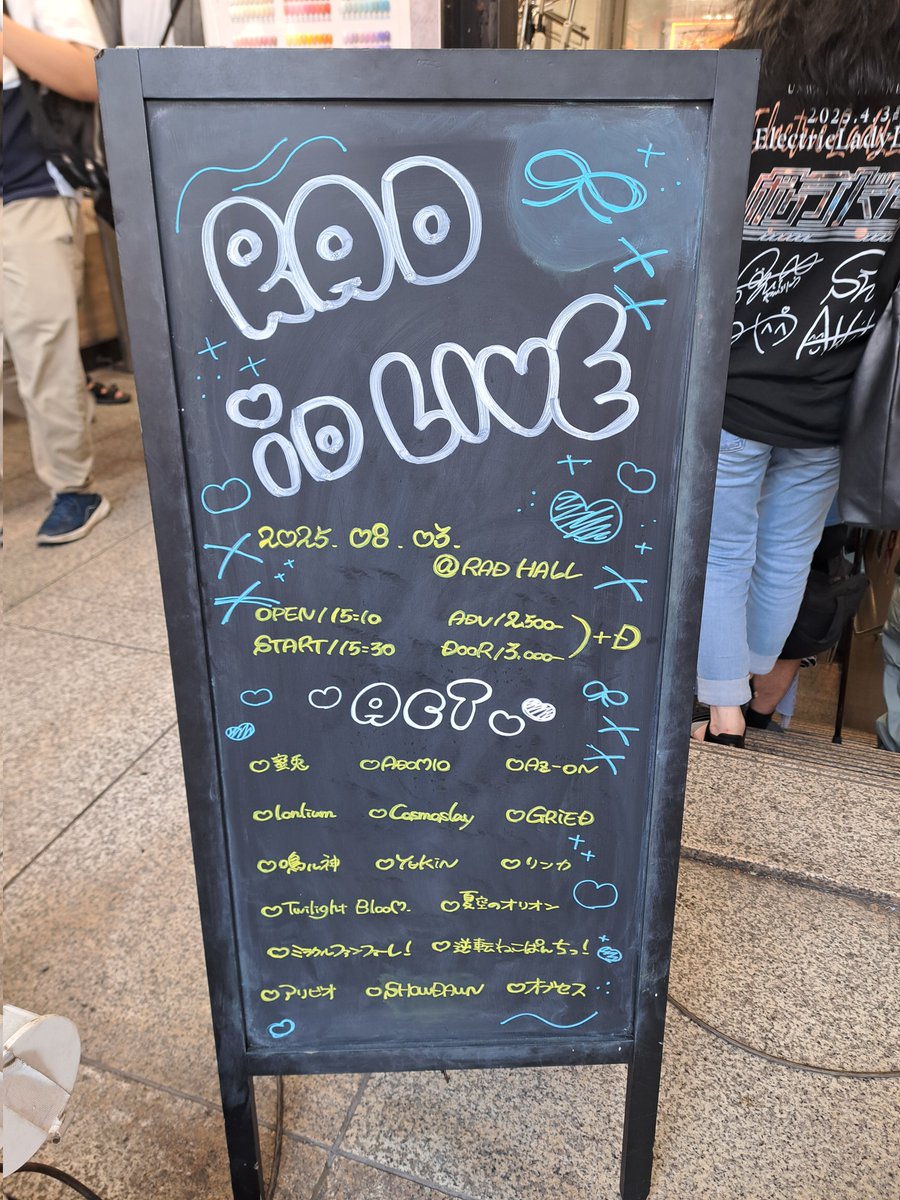 RAD
iD LIVE
2025. 08. 03.
@RAD HALL
OPEN/15:10 ADV/2.500-
START/15:30 DOOR/3.000- )+D
ACT
アリビオ SHOWDAWN オブセス
Lantium Cosmoslay GRiED
鳴ル神 YUKiN リンカ
Twilight BlooM. 夏空のオリオン
ミラクルファンファーレ! 逆転ねこぱんちっ!
2025.4.3
ElectricLadyL